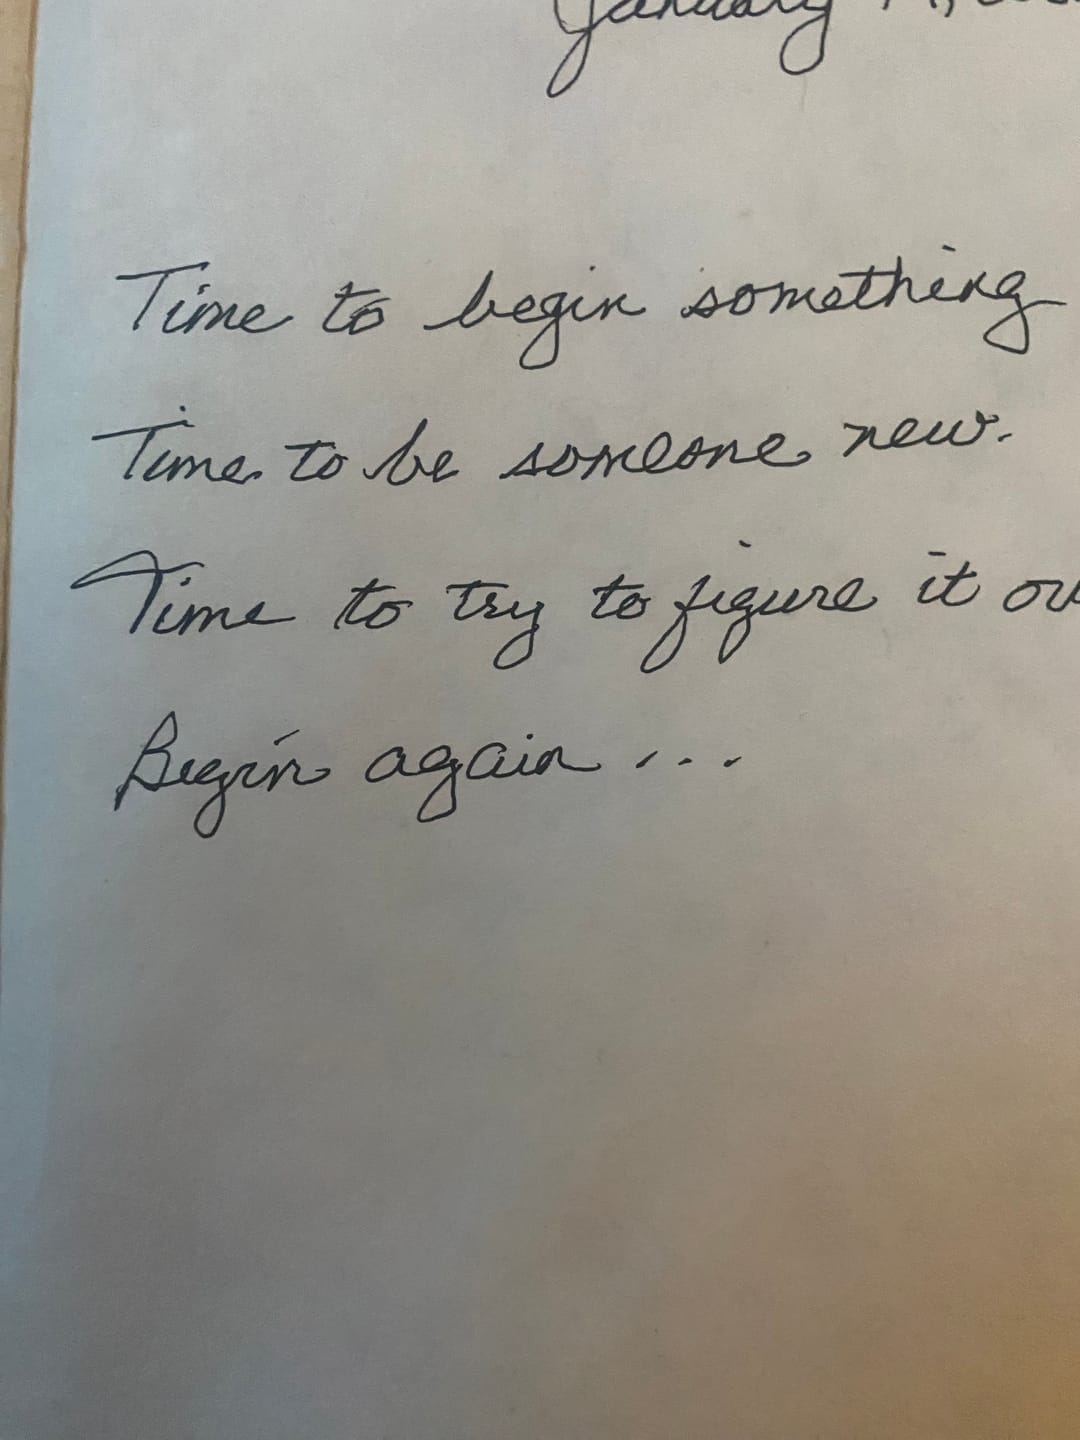 January
Time to begin something
Time to be someone new.
Time to try to figure it
Begin again...